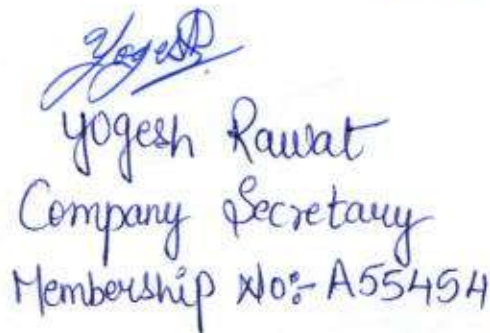 Yogesh
Yogesh Rawat
Company Secretary
Membership No:- A55454